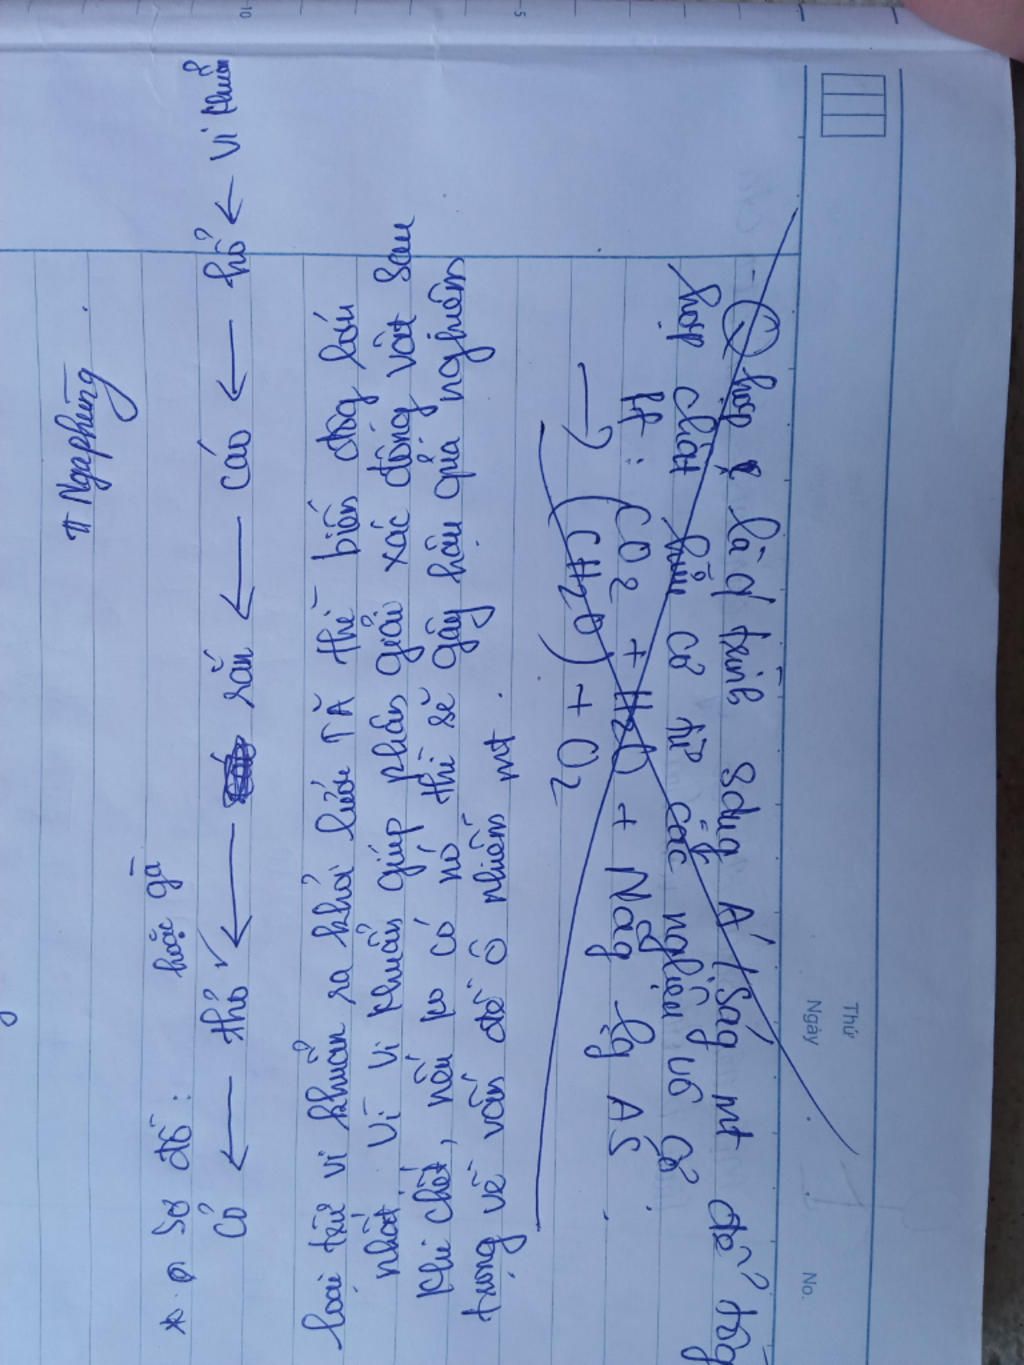 Thứ
Ngày
No.
Q hợp là q/ trình sdụg Á/Ság mt để tổg
hợp chất hữu cơ từ các nguồn vô cơ
pt: CO2 + H2O + Năg lg AS
→ (CH2O) + O2
* Sơ đồ: hoặc gà
Cỏ ← thỏ ← rắn ← cáo ← hổ ← vi khuẩn
loại trừ vi khuẩn ra khỏi lưới TĂ thì biến độg lớn
nhất. Vì vi khuẩn giúp phân giải xác động vật sau
khi chết, nếu ko có nó thì sẽ gây hậu quả nghiêm
trọng về vấn đề ô nhiễm mt.
5
10